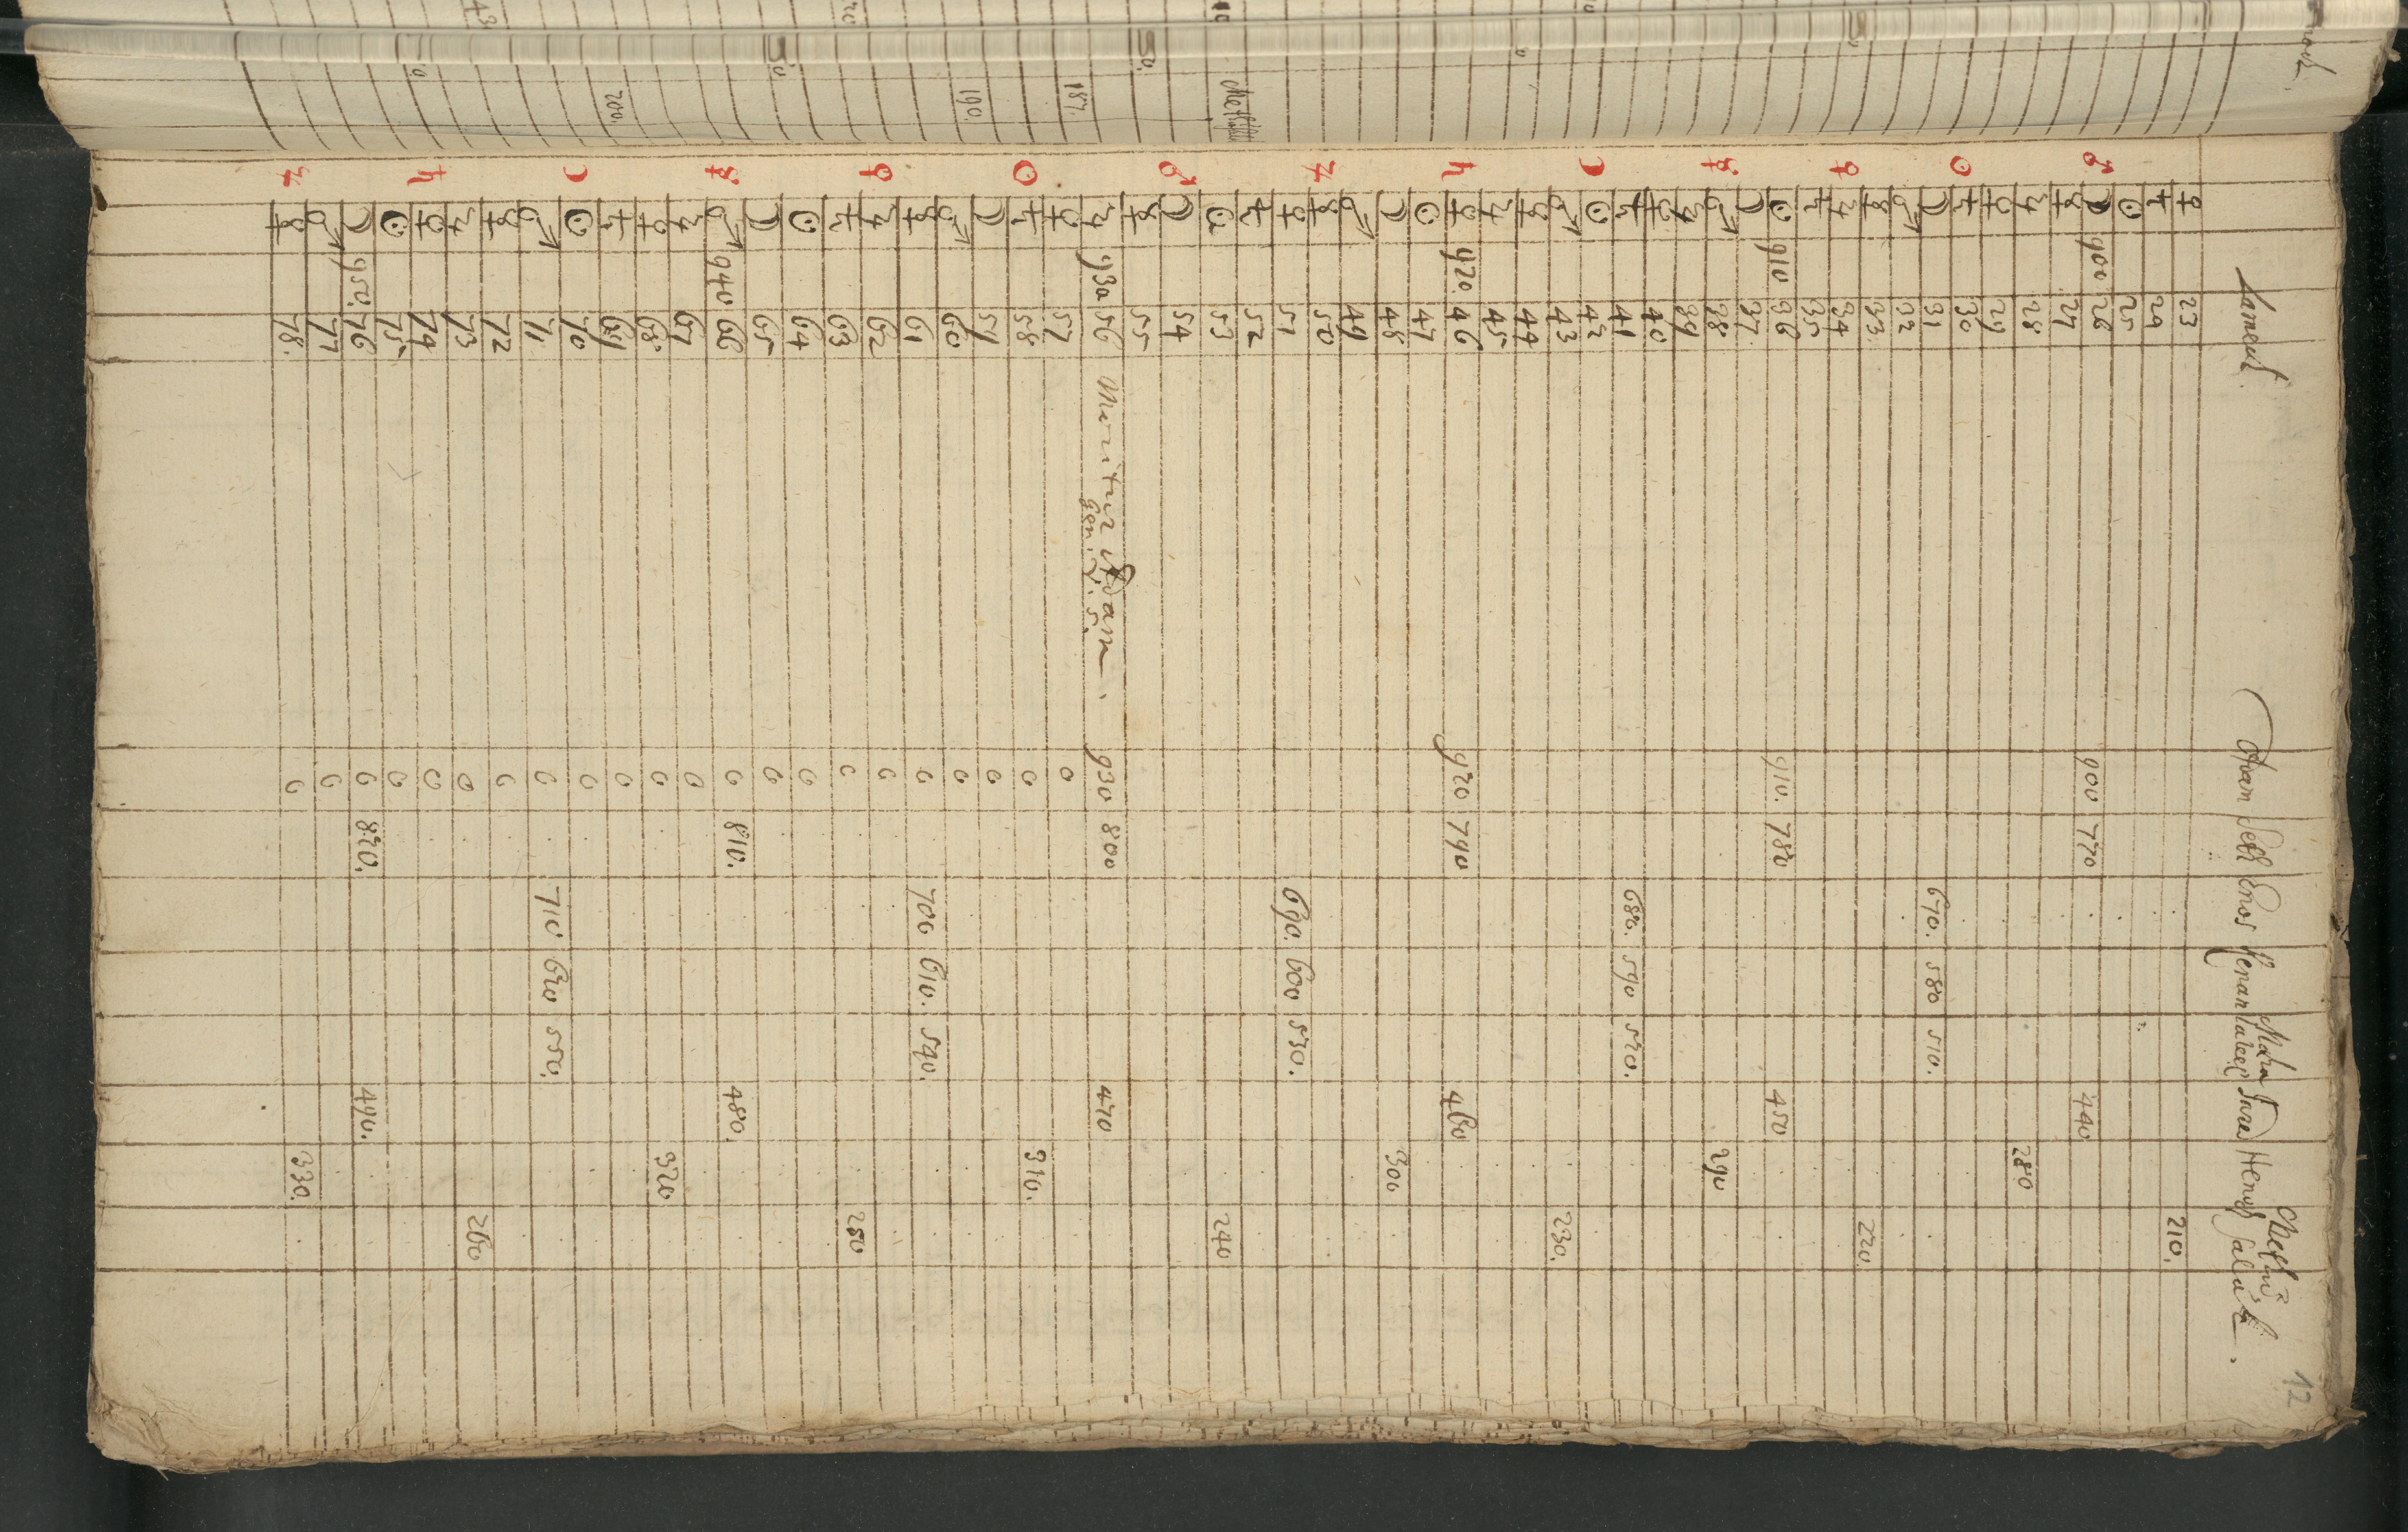 Lamech. Adam Seth Enos Kenan Mahalaleel Jared Henoch Methusalah. 12
♀ 23 210.
♄ 24
☉ 25
♂ ☽ 900 26 900 770 440
☿ 27
♃ 28 280
♀ 29
☉ ♄ 30
☽ 31 670. 580 510.
♂ 32
☿ 33. 220.
♀ ♃ 34
♄ 35
☉ 910 36 910. 780 450
☽ 37.
☿ ♂ 38 290
♃ 39
♀ 40
♄ 41 680. 590 520.
☽ ☉ 42
♂ 43 230.
☿ 44
♃ 45
♄ ♀ 920. 46 920 790 460
☉ 47
☽ 48 300
♂ 49
♃ ☿ 50
♀ 51 690. 600 530.
♄ 52
☉ 53 240
♂ ☽ 54
☿ 55
♃ 930 56 Moritur Adam. 930 800 470
gen: 5.
♀ 57 0
☉ ♄ 58 0 310.
☽ 59 0
♂ 60 0
☿ 61 0 700 610. 540.
♀ ♃ 62 0
♄ 63 0 250
☉ 64 0
☽ 65 0
☿ ♂ 940 66 0 810. 480.
♃ 67 0
♀ 68 0 320
♄ 69 0
☽ ☉ 70 0
♂ 71 0 710 620 550.
☿ 72 0
♃ 73 0 260
♄ ♀ 74 0
☉ 75 0
☽ 950. 76 0 820. 490.
♂ 77 0
♃ ☿ 78. 0 330.